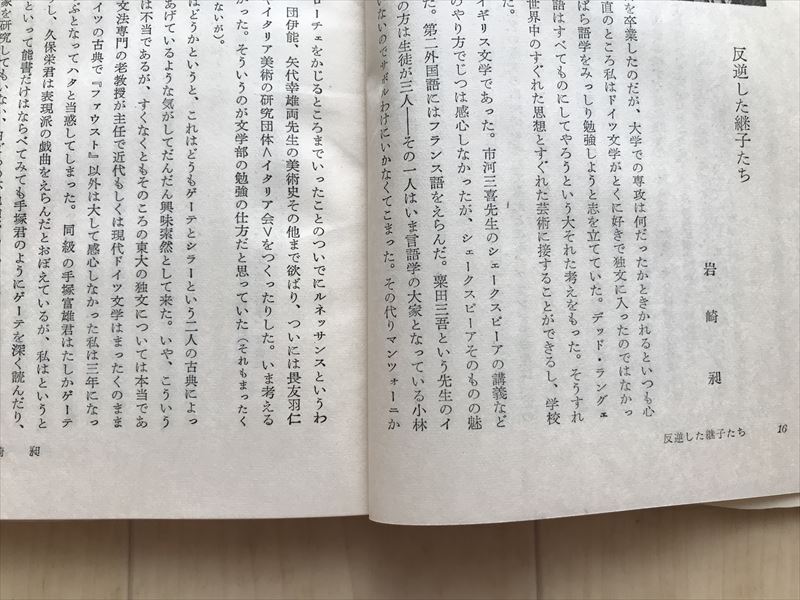 反逆した継子たち
岩崎昶
を卒業したのだが、大学での専攻は何だったかときかれるといつも心
直のところ私はドイツ文学がとくに好きで独文に入ったのではなかっ
ぱら語学をみっしり勉強しようと志を立てていた。デッド・ラングェ
語はすべてものにしてやろうという大それた考えをもった。そうすれ
世界中のすぐれた思想とすぐれた芸術に接することができるし、学校
た。
イギリス文学であった。市河三喜先生のシェークスピーアの講義など
のやり方でじつは感心しなかったが、シェークスピーアそのものの魅
た。第二外国語にはフランス語をえらんだ。粟田三吾という先生のイ
の方は生徒が三人――その一人はいま言語学の大家となっている小林
いないのでサボルわけにいかなくてこまった。その代りマンツォーニか
16
反逆した継子たち
ローチェをかじるところまでいったことのついでにルネッサンスというわ
団伊能、矢代幸雄両先生の美術史その他まで欲ばり、ついには畏友羽仁
イタリア美術の研究団体＜イタリア会＞をつくったりした。いま考える
かった。そういうのが文学部の勉強の仕方だと思っていた（それもまったく
ないが）。
はどうかというと、これはどうもゲーテとシラーという二人の古典によっ
あげているような気がしてだんだん興味索然として来た。いや、こういう
は不当であるが、すくなくともそのころの東大の独文については本当であ
文法専門の老教授が主任で近代もしくは現代ドイツ文学はまったくのまま
イツの古典で『ファウスト』以外は大して感心しなかった私は三年になっ
ぶとなってハタと当惑してしまった。同級の手塚富雄君はたしかゲーテ
し、久保栄君は表現派の戯曲をえらんだとおぼえているが、私はというと
といって能書だけはならべてみても手塚君のようにゲーテを深く読んだり、
家を研究してもいない
昶